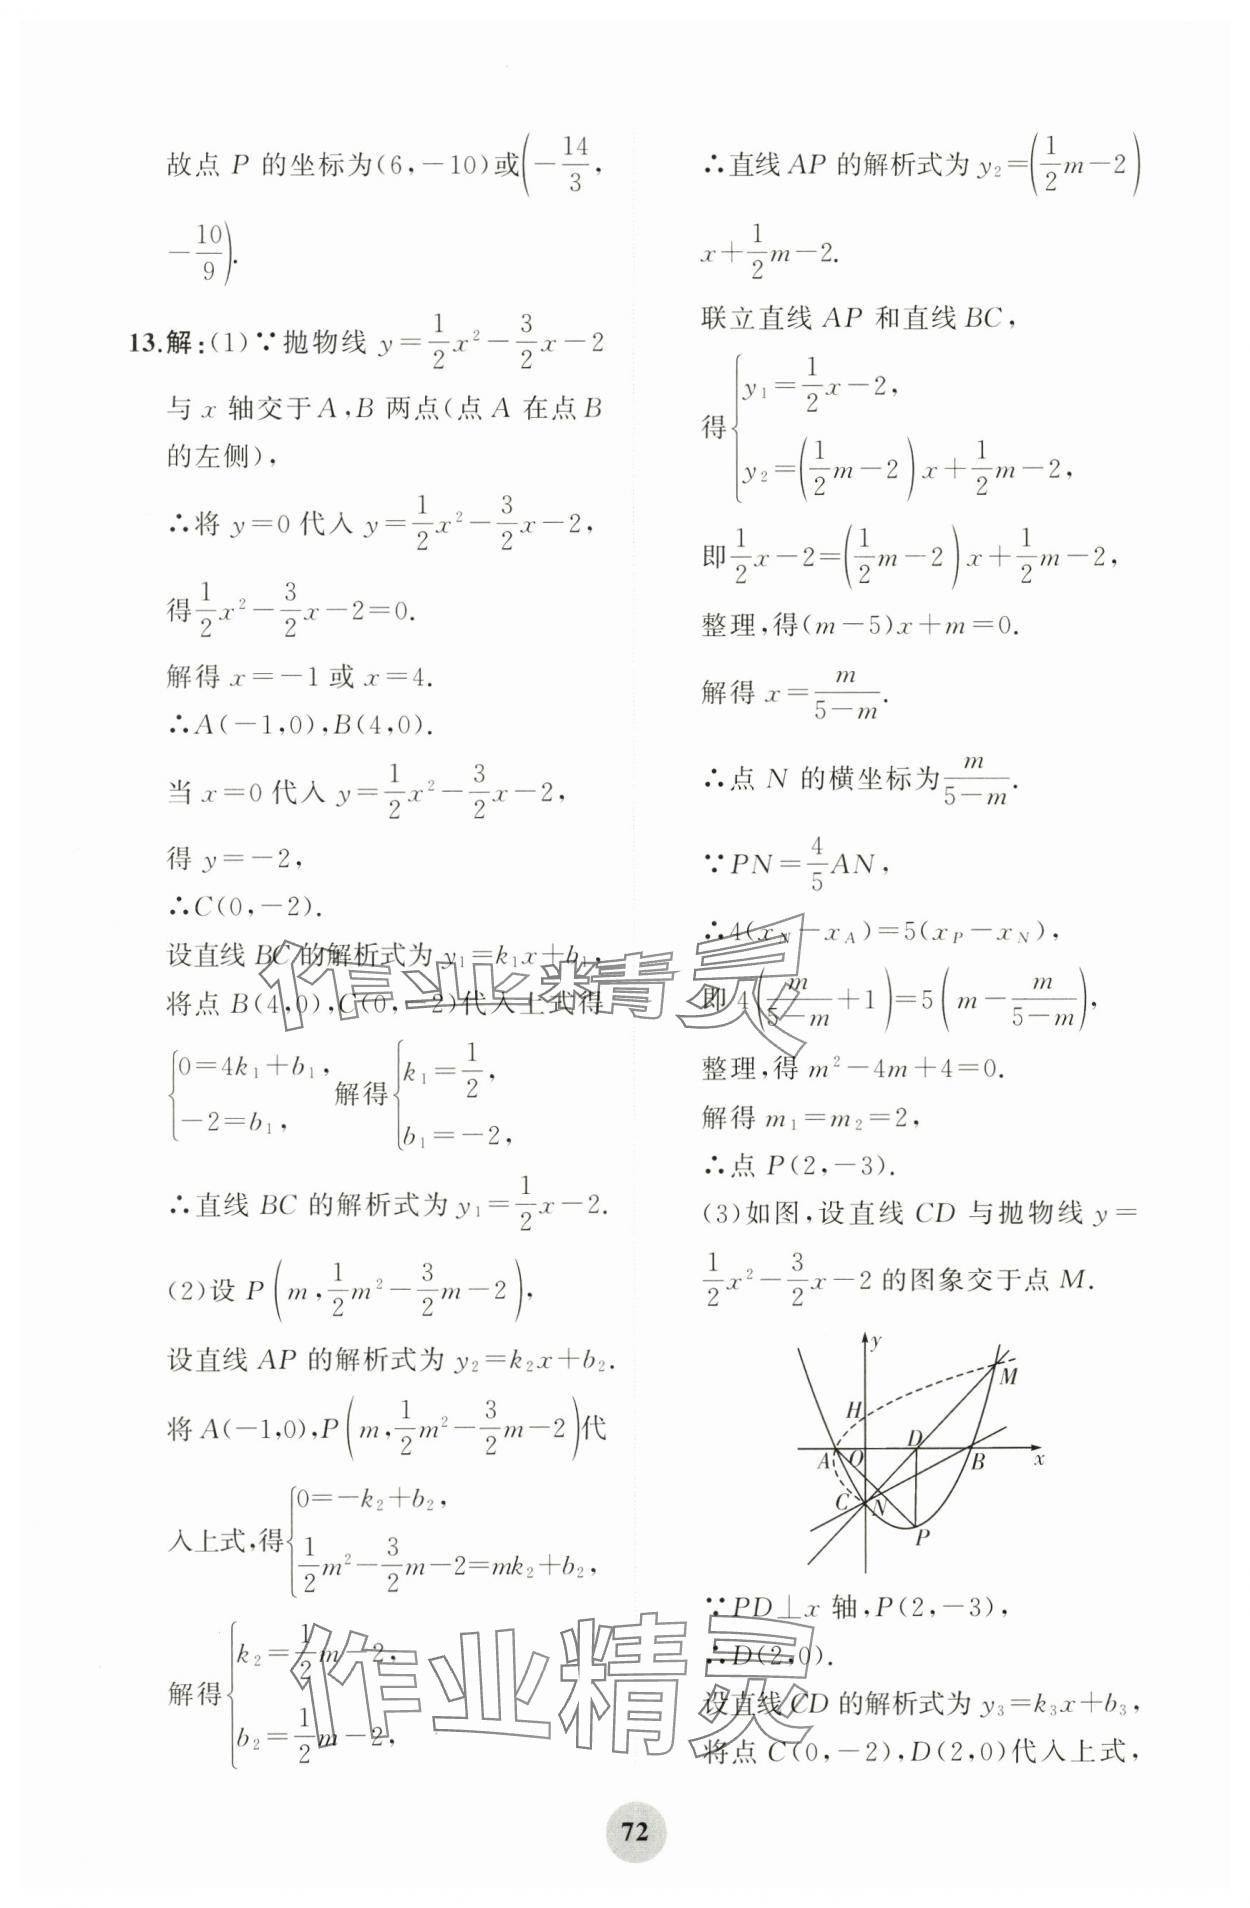 故点 P 的坐标为(6,-10)或(-14/3,
-10/9).
13.解:(1)∵抛物线 y=1/2x²-3/2x-2
与 x 轴交于A,B 两点(点A 在点B
的左侧),
∴将 y=0 代入 y=1/2x²-3/2x-2,
得1/2x²-3/2x-2=0.
解得 x=-1 或 x=4.
∴A(-1,0),B(4,0).
当 x=0 代入 y=1/2x²-3/2x-2,
得 y=-2,
∴C(0,-2).
设直线 BC 的解析式为 y₁=k₁x+b₁,
将点 B(4,0),C(0,-2)代入上式得
{0=4k₁+b₁, -2=b₁, 解得{k₁=1/2, b₁=-2,
∴直线 BC 的解析式为 y₁=1/2x-2.
(2)设 P(m,1/2m²-3/2m-2),
设直线 AP 的解析式为 y₂=k₂x+b₂.
将 A(-1,0),P(m,1/2m²-3/2m-2)代
入上式,得{0=-k₂+b₂, 1/2m²-3/2m-2=mk₂+b₂,
解得{k₂=1/2m-2, b₂=1/2m-2,
∴直线 AP 的解析式为 y₂=(1/2m-2)
x+1/2m-2.
联立直线 AP 和直线 BC,
得{y₁=1/2x-2, y₂=(1/2m-2)x+1/2m-2,
即1/2x-2=(1/2m-2)x+1/2m-2,
整理,得(m-5)x+m=0.
解得 x=m/(5-m).
∴点 N 的横坐标为m/(5-m).
∵PN=4/5AN,
∴4(x_N-x_A)=5(x_P-x_N),
即 4(m/(5-m)+1)=5(m-m/(5-m)),
整理,得 m²-4m+4=0.
解得 m₁=m₂=2,
∴点 P(2,-3).
(3)如图,设直线 CD 与抛物线 y=
1/2x²-3/2x-2 的图象交于点 M.
y
M
H
D
A O B x
C N
P
∵PD⊥x 轴,P(2,-3),
∴D(2,0).
设直线 CD 的解析式为 y₃=k₃x+b₃,
将点 C(0,-2),D(2,0)代入上式,
作业精灵
作业精灵
72